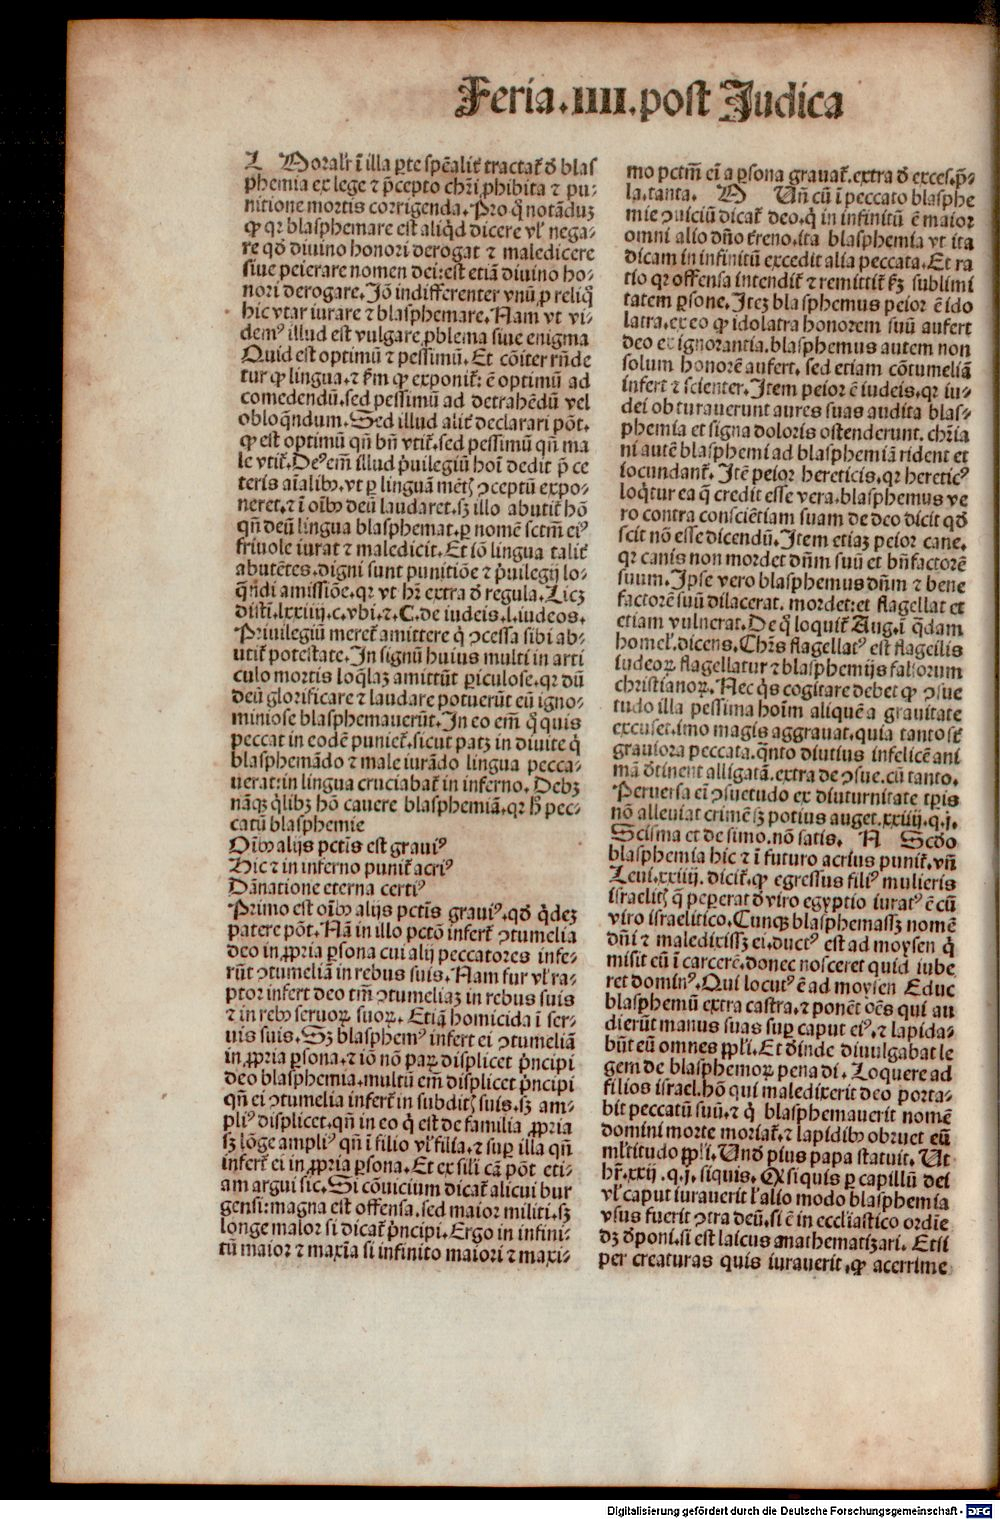 Feria.IIII.post Judica
L Moralr̃ ĩ illa ꝑte sp̃ealit᷑ tractat᷑ ð blas
phemia ex lege ⁊ p̃cepto chr̃i ꝓhibita ⁊ pu⸗
nitione mortis corrigenda. Pro q̊ notãduꝫ
ꝙ qꝛ blasphemare est aliq̊d dicere vl᷑ nega⸗
re qð diuino honori derogat ⁊ maledicere
siue peierare nomen dei: est etiã diuino ho⸗
nori derogare. Jõ indifferenter vnũ ꝓ reliq̊
hic vtar iurare ⁊ blasphemare. Nam vt vi⸗
demꝰ illud est vulgare ꝓblema siue enigma
Quid est optimũ ⁊ pessimũ. Et cõiter rñde
tur ꝙ lingua. ⁊ ẽm ꝙ exponit᷑: ẽ optimũ ad
comedendũ. sed pessimũ ad detrahẽdũ vel
obloq̃ndum. Sed illud alit᷑ declarari põt.
ꝙ est optimũ qñ bñ vtit᷑. sed pessimũ qñ ma
le vtit᷑. Deꝰ em̃ illud p̃uilegiũ hoĩ dedit p̃ ce
teris aĩalibꝰ. vt ꝑ linguã mẽtꝭ ꝯceptũ expo⸗
neret. ⁊ ĩ oĩbꝰ deũ laudaret. sꝫ illo abutit᷑ hõ
qñ deũ lingua blasphemat. ꝑ nomẽ sctm̃ eiꝰ
friuole iurat ⁊ maledicit. Et iõ lingua talit᷑
abutẽtes. digni sunt punitiõe ⁊ p̃uilegij lo⸗
q̃ndi amissiõe. qꝛ vt hr̃ extra ð regula. Licꝫ
disti. lxxiiij. c. vbi. ⁊. C. de iudeis. l. iudeos.
Priuilegiũ meret᷑ amittere q̇ ꝯcessa sibi ab⸗
utit᷑ potestate. In signũ huius multi in arti
culo mortis loq̃laꝫ amittũt ꝑiculose. qꝛ dũ
deũ glorificare ⁊ laudare potuerũt eũ igno⸗
miniose blasphemauerũt. In eo em̃ q̊ quis
peccat in eodẽ puniet᷑. sicut patꝫ in diuite q̇
blasphemãdo ⁊ male iurãdo lingua pecca⸗
uerat: in lingua cruciabat᷑ in inferno. Debꝫ
nãqꝫ q̇libꝫ hõ cauere blasphemiã. qꝛ h̃ pec⸗
catũ blasphemie
Oĩbꝰ alijs pctĩs est grauiꝰ
Hic ⁊ in inferno punit᷑ acriꝰ
Dãnatione eterna certiꝰ
Primo est oĩbꝰ alijs pctĩs grauiꝰ. qð q̇deꝫ
patere põt. Nã in illo pctõ infert᷑ ꝯtumelia
deo in ꝓpria ꝑsona cui alij peccatores infe⸗
rũt ꝯtumeliã in rebus suis. Nam fur vl᷑ ra⸗
ptor infert deo tm̃ ꝯtumeliaꝫ in rebus suis
⁊ in rebꝰ seruoꝝ suoꝝ. Etiã homicida ĩ ser⸗
uis suis. Sꝫ blasphemꝰ infert ei ꝯtumeliã
in ꝓpria ꝑsona. ⁊ iõ nõ paꝝ displicet p̃ncipi
deo blasphemia. multũ em̃ displicet p̃ncipi
qñ ei ꝯtumelia infert᷑ in subditꝭ suis. sꝫ am⸗
pliꝰ displicet. qñ in eo q̇ est de familia ꝓpria
sꝫ lõge ampliꝰ qñ ĩ filio vl᷑ filia. ⁊ suꝑ illa qñ
infert᷑ ei in ꝓpria ꝑsona. Et ex sili cã põt eti⸗
am argui sic. Si cõuicium dicat᷑ alicui bur
gensi: magna est offensa. sed maior militi. sꝫ
longe maior si dicat᷑ p̃ncipi. Ergo in infini⸗
tũ maior ⁊ maxĩa si infinito maiori ⁊ maxi⸗
mo pctm̃ eĩ a ꝑsona grauat᷑. extra ð exces. p̃⸗
la. tanta. M Uñ cũ ĩ peccato blasphe
mie ꝯuiciũ dicat᷑ deo. q̇ in infinitũ ẽ maior
omni alio dño t᷑reno. ita blasphemia vt ita
dicam in infinitũ excedit alia peccata. Et ra
tio qꝛ offensa intendit᷑ ⁊ remittit᷑ ẜꝫ sublimi
tatem ꝑsone. Iteꝫ blasphemus peior ẽ ido
latra. ex eo ꝙ idolatra honorem suũ aufert
deo ex ignorantia. blasphemus autem non
solum honorẽ aufert. sed etiam cõtumeliã
infert ⁊ scienter. Item peior ẽ iudeis. qꝛ iu⸗
dei obturauerunt aures suas audita blas⸗
phemia et signa doloris ostenderunt. chr̃ia
ni autẽ blasphemi ad blasphemiã rident et
iocundant᷑. Itẽ peior hereticis. qꝛ hereticꝰ
loq̇tur ea q̃ credit esse vera. blasphemus ve
ro contra consciẽtiam suam de deo dicit qð
scit nõ esse dicendũ. Item etiaꝫ peior cane.
qꝛ canis non mordet dñm suũ et bñfactorẽ
suum. Ipse vero blasphemus dñm ⁊ bene
factorẽ suũ dilacerat. mordet: et flagellat et
etiam vulnerat. De q̊ loquit᷑ Aug. ĩ q̃dam
homel᷑. dicens. Chr̃s flagellatꝰ est flagellis
iudeoꝝ flagellatur ⁊ blasphemijs falsorum
christianoꝝ. Nec q̇s cogitare debet ꝙ ꝯsue
tudo illa pessima hoĩm aliquẽ a grauitate
excuset. imo magis aggrauat. quia tanto st᷑
grauiora peccata. q̃nto diutius infelicẽ ani
mã ðtinent alligatã. extra de ꝯsue. cũ tanto.
Peruersa eĩ ꝯsuetudo ex diuturnitate tꝑis
nõ alleuiat crimẽ sꝫ potius auget. xxiiij. q. j.
Scisma et de simo. nõ satis. N Scðo
blasphemia hic ⁊ ĩ futuro acrius punit᷑. vñ
Leui. xxiiij. dicit᷑. ꝙ egressus filiꝰ mulieris
israelitꝭ q̃ peperat ð viro egyptio iuratꝰ ẽ cũ
viro israelitico. Cunqꝫ blasphemassꝫ nomẽ
dñi ⁊ maledixissꝫ ei. ductꝰ est ad moysen q̇
misit eũ ĩ carcerẽ. donec nosceret quid iube
ret dominꝰ. Qui locutꝰ ẽ ad moysen Educ
blasphemũ extra castra. ⁊ ponẽt oẽs qui au
dierũt manus suas suꝑ caput eiꝰ. ⁊ lapida⸗
bũt eũ omnes ppl᷑i. Et ðinde diuulgabat le
gem de blasphemoꝝ pena di. Loquere ad
filios israel. hõ qui maledixerit deo porta⸗
bit peccatũ suũ. ⁊ q̇ blasphemauerit nomẽ
domini morte moriat᷑. ⁊ lapidibꝰ obruet eũ
ml᷑titudo ppl᷑i. Unð pius papa statuit. Ut
hr̃. xxij. q. j. siquis. Qꝫ siquis ꝑ capillũ dei
vl᷑ caput iurauerit l᷑ alio modo blasphemia
vsus fuerit ꝯtra deũ. si ẽ in ecclĩastico ordĩe
dꝫ ðponi. si est laicus anathematizari. Etsi
per creaturas quis iurauerit. ꝙ acerrime
Digitalisierung gefördert durch die Deutsche Forschungsgemeinschaft - DFG